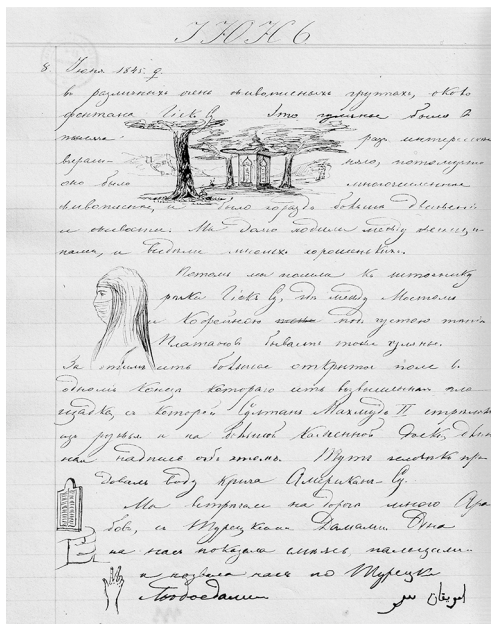 ІЮНЬ
8. Іюня 1845. g.
въ различныхъ очень живописныхъ группахъ, около
фонтана Гіокъ Су. Это гулянье было въ
разъ интереснѣе
вчераш- няго, потому что
оно было многочисленнѣе
живописнѣе, и было гораздо больше движенія
и живости. Мы долго ходили между женщи-
нами, и видѣли многихъ хорошенькихъ.
Потомъ мы пошли къ источнику
рѣки Гіокъ Су, гдѣ между Мостомъ
и Кофейною подъ густою тѣнью
Платановъ бываетъ тоже гулянье.
За этимъ есть большое открытое поле въ
одномъ концѣ котораго есть возвышенная пло-
щадка, съ которой Султанъ Махмудъ II стрѣлялъ
изъ ружья и на большой каменной доскѣ,
надпись объ этомъ. Тутъ человѣкъ про
давалъ воду крича Американъ-Су.
Мы встрѣчали на дорогѣ много Ара
бовъ, съ Турецкими Дамами. Одна
на насъ показала смѣясь, пальцами
и назвала насъ по Турецки
Людоѣдами
امریقان سو